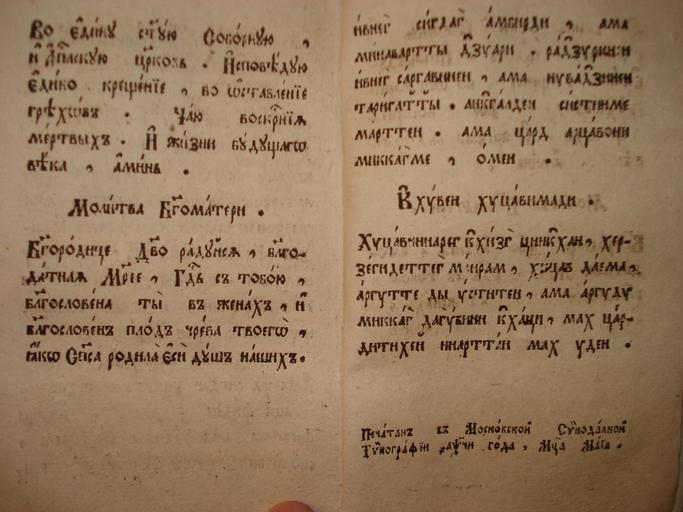 Во є҆ди́ну ст҃ꙋ́ю Собо́рнꙋю ,
и҆ А҆пⷭ҇лскꙋю цр҃ковь . И҆сповѣ́дꙋю
є҆ди́но креще́нїе , во ѡ҆ставле́нїе
грѣхѡ́въ . Ча́ю воскрⷭ҇нїѧ
ме́ртвыхъ . И҆ жи́зни бꙋ́дꙋщагѡ
вѣ́ка , а҆ми́нь .
Моли́тва Бг҃ома́тери .
Бг҃оро́дице Дв҃о ра́дꙋйсѧ , бл҃го-
да́тнаѧ Мр҃і́е , Гдⷭ҇ь съ тобо́ю ,
бл҃гослове́на ты̀ въ жена́хъ , и҆
бл҃гослове́нъ пло́дъ чре́ва твоегѡ̀ ,
ꙗ҆́кѡ Сп҃са родила̀ є҆сѝ дꙋ́шъ на́шихъ .
и҆́внег сигда́г а҆́мбырди , ама
мина́вартты дзꙋ́ари . ра́дзꙋркини
и҆́внег са́ргавинен , ама нꙋва́дзинен
та́ригътты . анкга́лден систниме
марттен . ама ца́рд а҆цавони
миккагме , о҆́мен .
Кхꙋ́вен хꙋца́вимади .
Хꙋца́винарег кхи́зг цинкхан , хер-
зе́гидеттег ма́ирам , хꙋца́в да́ема ,
а́ргꙋтте ды ꙋ́ститен , ама аргꙋдꙋ
миккаг дагꙋ́бини кха́ци , мах цар-
дитихей ниартта́н мах ꙋден .
Печа́танъ въ Моско́вской Сѷнода́лной
Тѷпогра́фїи ҂аѱч҃и го́да , Мц҃а Ма́їа .